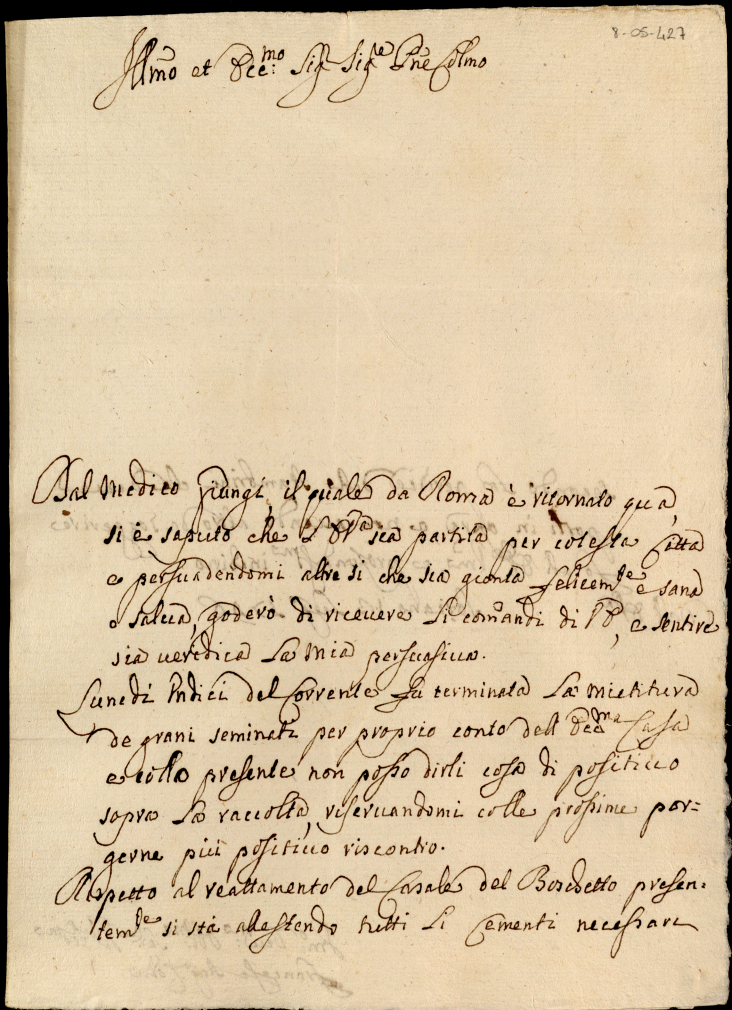 8-05-427
Illmo et Ecc:mo Sig Sig.re Pne Colmo
Dal Medico Giungi, il quale da Roma è ritornato qua,
si è saputo che S. E. V.ra sia partita per cotesta Città
e persuadendomi altresi che sia gionta felicem.te e sana
e salua, goderò di riceuere li comandi di V. E., e sentire
sia ueridica la mia persuasiua.
Lunedì Undici del Corrente fu terminata la mietitura
de grani seminati per proprio conto dell Ecc.ma Casa
e colla presente non posso dirli cosa di positiuo
sopra la raccolta, riseruandomi colle prossime por=
gerne più positiuo riscontro.
Rispetto al reattamento del Casale del Boschetto presen=
tem.te si stà allestendo tutti li Cementi necessari